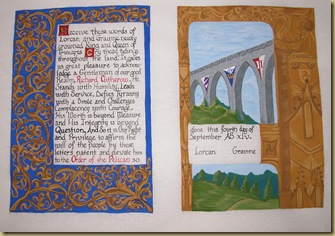 Receive these words of
Lorcan and Grainne newly
crowned King and Queen of
Cry these tidings
throughout the land. It gives
us great pleasure to acknow
ledge a Gentleman of our good
Realm, Richard Clitherow. He
Stands with Humility, Leads
with Service, Defies Tyranny
with a Smile and Challenges
Complacency with Courage.
His Worth is beyond Measure
and His Integrity is beyond
Question. And So it is Our Right
and Privilege to affirm the
will of the people by these
letters patent and elevate him
to the Order of the Pelican so
done this fourth day of
September AS xlv.
Lorcan Grainne